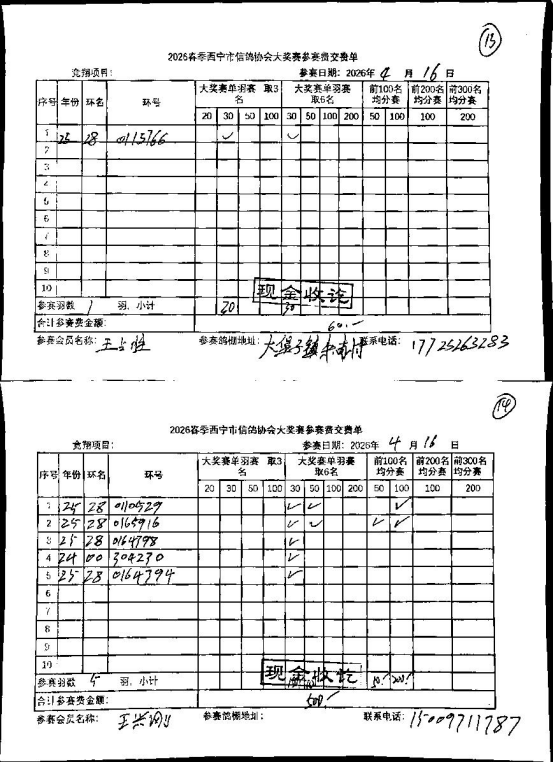 13
2026春季西宁市信鸽协会大奖赛参赛费交费单
竞翔项目: 参赛日期: 2026年 4 月 16 日
序号 年份 环名 环号 大奖赛单羽赛 取3名 大奖赛单羽赛 取6名 前100名均分赛 前200名均分赛 前300名均分赛
20 30 50 100 30 50 100 200 50 100 100 200
1 25 28 0115766 ✓ ✓
2
3
4
5
6
7
8
9
10
现金收讫
参赛羽数 1 羽, 小计 30 30
合计参赛费金额: 60.-
参赛会员名称: 参赛鸽棚地址: 大堡子镇 联系电话: 17725263283
14
2026春季西宁市信鸽协会大奖赛参赛费交费单
竞翔项目: 参赛日期: 2026年 4 月 16 日
序号 年份 环名 环号 大奖赛单羽赛 取3名 大奖赛单羽赛 取6名 前100名均分赛 前200名均分赛 前300名均分赛
20 30 50 100 30 50 100 200 50 100 100 200
1 25 28 0110529 ✓ ✓ ✓
2 25 28 0165916 ✓ ✓ ✓ ✓
3 25 28 0164798 ✓
4 24 00 304230 ✓
5 25 28 0164794 ✓
6
7
8
9
10
现金收讫
参赛羽数 5 羽, 小计 50.- 200.-
合计参赛费金额: 500.-
参赛会员名称: 参赛鸽棚地址: 联系电话: 15009711787